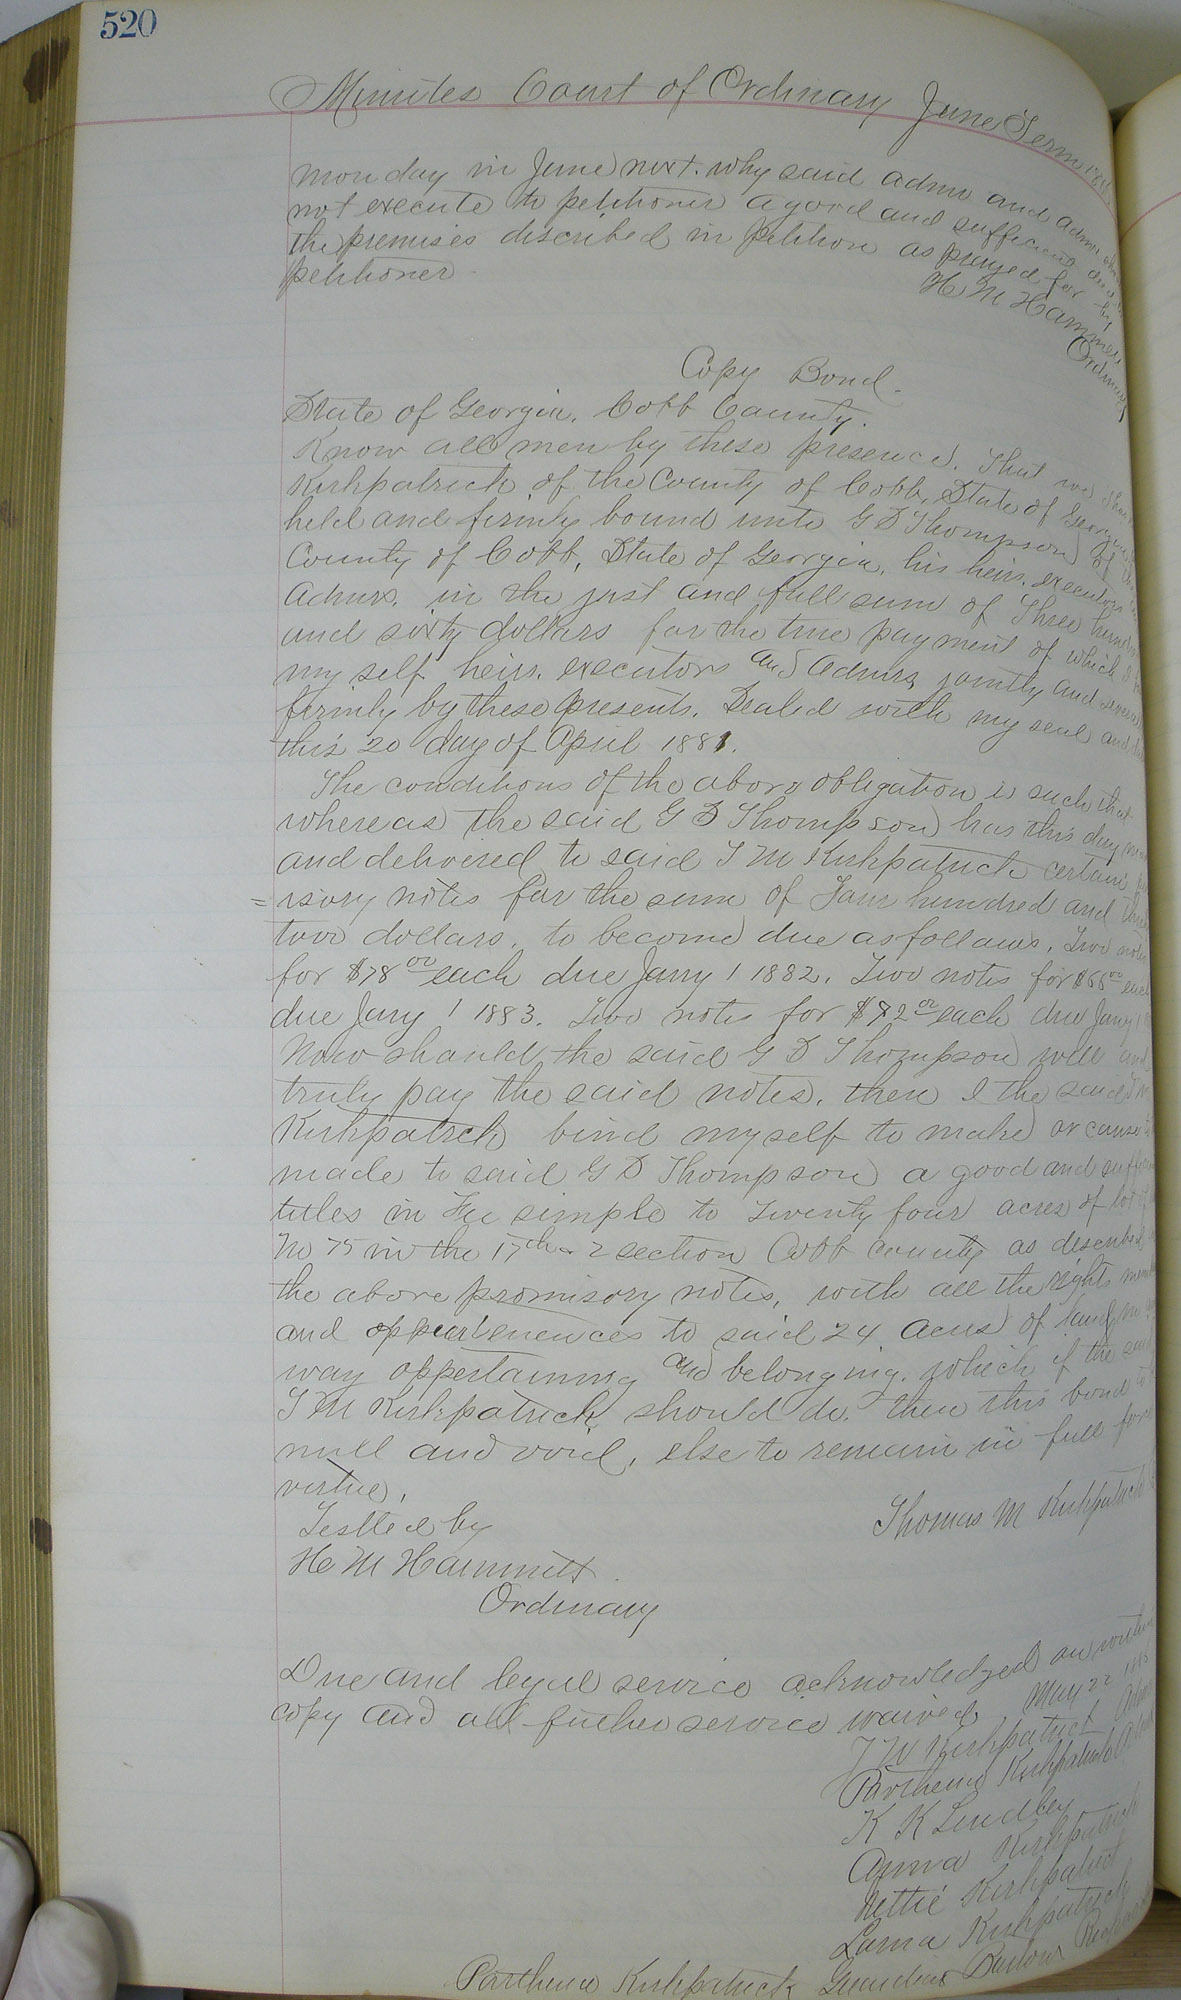 520
Minutes Court of Ordinary June Term
monday in June next. why said admr and admx
not execute to petitioner a good and sufficient deed
the premises described in petition as prayed for by
petitioner
H M Hammett
Ordinary
Copy Bond.
State of Georgia. Cobb County.
Know all men by these presence. That we
Kirkpatrick of the County of Cobb, State of Georgia
held and firmly bound unto G D Thompson of
County of Cobb, State of Georgia, his heirs, executors
Admrs. in the just and full sum of Three hundred
and sixty dollars for the true payment of which I
my self heirs. executors and Admrs jointly and
firmly by these presents. Sealed with my seal and
this 20 day of April 1881.
The conditions of the above obligation is such that
whereas the said G D Thompson has this day
and delivered to said T M Kirkpatrick certain
=issory notes for the sum of Four hundred and
two dollars, to become due as follows. Two notes
for $78 00 each due Jany 1 1882. Two notes for $66 00 each
due Jany 1 1883. Two notes for $72 00 each due Jany 1
Now should the said G D Thompson well and
truly pay the said notes, then I the said
Kirkpatrick bind myself to make or cause
made to said G D Thompson a good and
titles in Fee simple to Twenty four acres of lot
No 75 in the 17th & 2 section Cobb county as described
the above promisory notes, with all the rights
and oppurtenences to said 24 acres of land in
way oppertaining and belonging. which if the said
T M Kirkpatrick should do. then this bond
null and void, else to remain in full force
virtue.
Tested by
Thomas M Kirkpatrick
H M Hammett
Ordinary
Due and legal service acknowledged on within
copy and all further service waived May 22
T W Kirkpatrick Admr
Parthena Kirkpatrick
K K Lindley
Anna Kirkpatrick
Nettie Kirkpatrick
Laura Kirkpatrick
Parthena Kirkpatrick Guardian